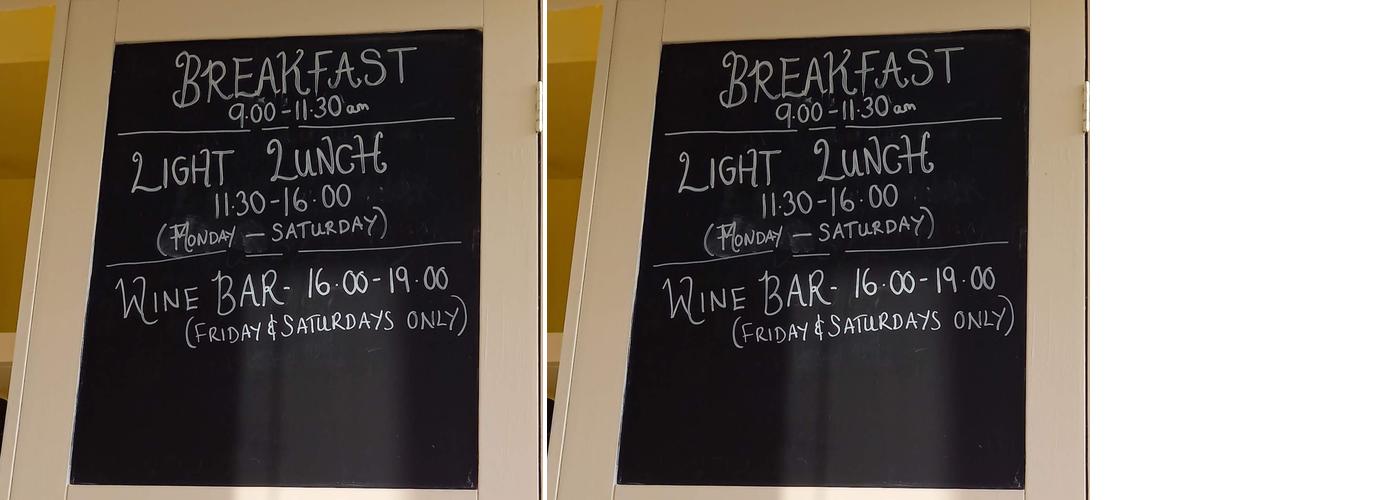 BREAKFAST
9.00-11.30am
LIGHT LUNCH
11.30-16.00
(MONDAY - SATURDAY)
WINE BAR- 16.00-19.00
(FRIDAY & SATURDAYS ONLY)
BREAKFAST
9.00-11.30am
LIGHT LUNCH
11.30-16.00
(MONDAY - SATURDAY)
WINE BAR- 16.00-19.00
(FRIDAY & SATURDAYS ONLY)